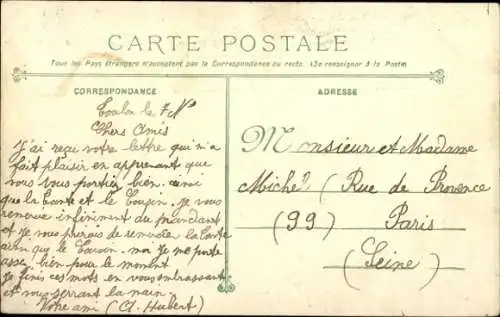 CARTE POSTALE
Tous les Pays étrangers n'acceptent pas la Correspondance au recto. (Se renseigner à la Poste)
CORRESPONDANCE
ADRESSE
Toulon le 7 N
Chers Amis
J'ai reçu votre lettre qui m'a
fait plaisir en apprenant que
vous vous portiez bien ainsi
que la tante et le Cousin. Je vous
remercie infiniment du mandant
et je vous
ainsi que le Cousin. moi je me porte
assez bien pour le moment
Je finis ces mots en vous embrassant
et vous serrant la main.
Votre ami (A. Hubert)
Monsieur et Madame
Michel (Rue de Provence
(99) Paris
(Seine)